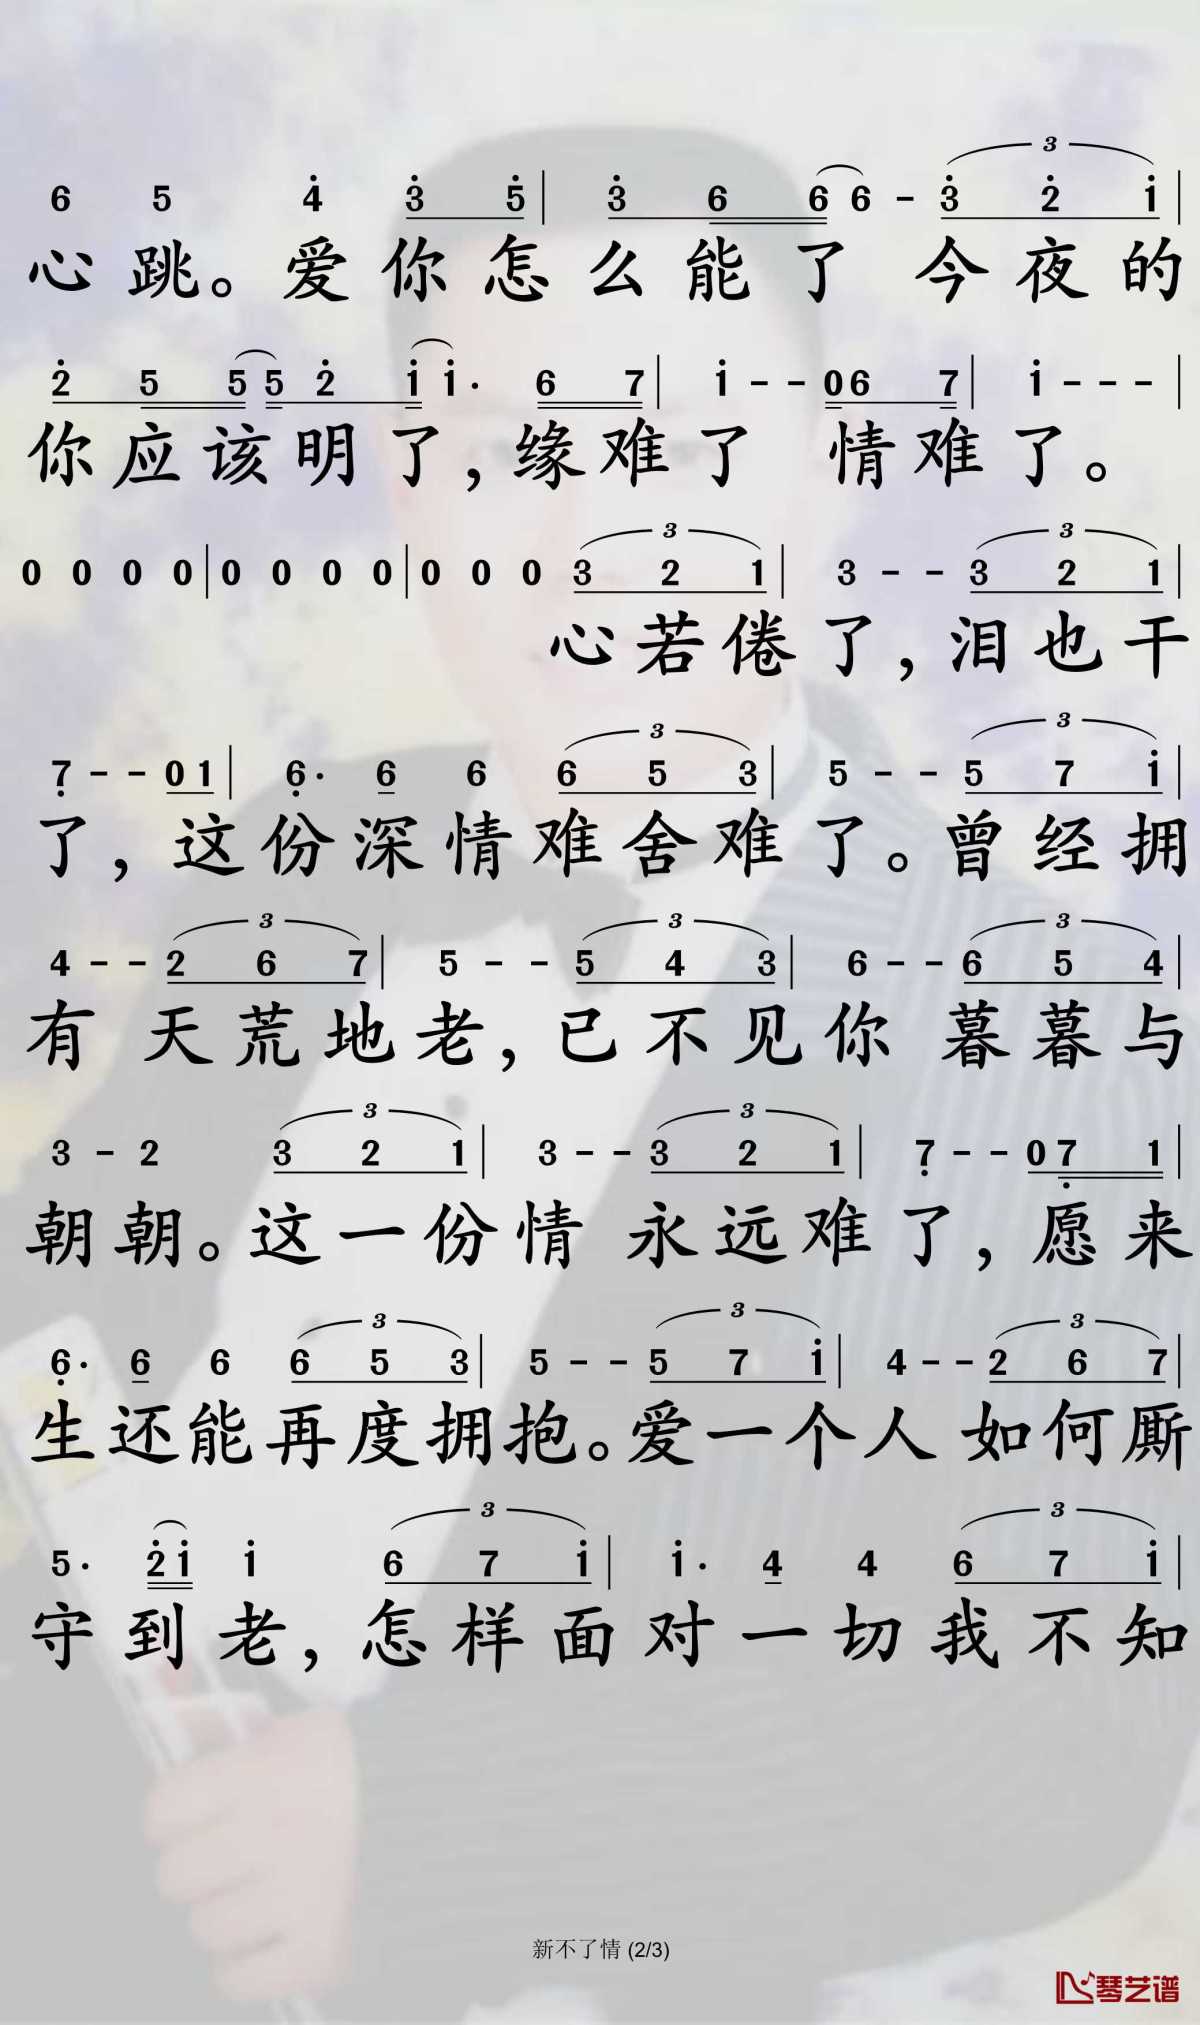 3
6 5 4 3 5 | 3 6 6 6 - 3 2 1 |
心跳。爱你怎么能了 今夜的
2 5 5 5 2 1 1· 6 7 | 1 - - 0 6 7 | 1 - - - |
你应该明了,缘难了 情难了。
3 3
0 0 0 0 | 0 0 0 0 | 0 0 0 3 2 1 | 3 - - 3 2 1 |
心若倦了,泪也干
3 3
7 - - 0 1 | 6· 6 6 6 5 3 | 5 - - 5 7 1 |
了,这份深情难舍难了。曾经拥
3 3 3
4 - - 2 6 7 | 5 - - 5 4 3 | 6 - - 6 5 4 |
有 天荒地老,已不见你 暮暮与
3 3
3 - 2 3 2 1 | 3 - - 3 2 1 | 7 - - 0 7 1 |
朝朝。这一份情 永远难了,愿来
3 3 3
6· 6 6 6 5 3 | 5 - - 5 7 1 | 4 - - 2 6 7 |
生还能再度拥抱。爱一个人 如何厮
3 3
5· 2 1 1 6 7 1 | 1· 4 4 6 7 1 |
守到老,怎样面对一切我不知
新不了情 (2/3)
琴艺谱